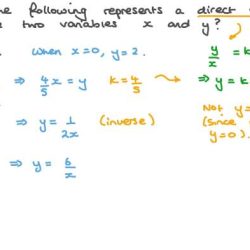 he following represents a direct
two variables x and y?
When x=0, y=2.
y/x = k
⇒ 4/5 x = y k = 4/5
⇒ y = k
⇒ y = 1/2x (inverse)
Not y=
(since
y=0).
⇒ y = 6/x